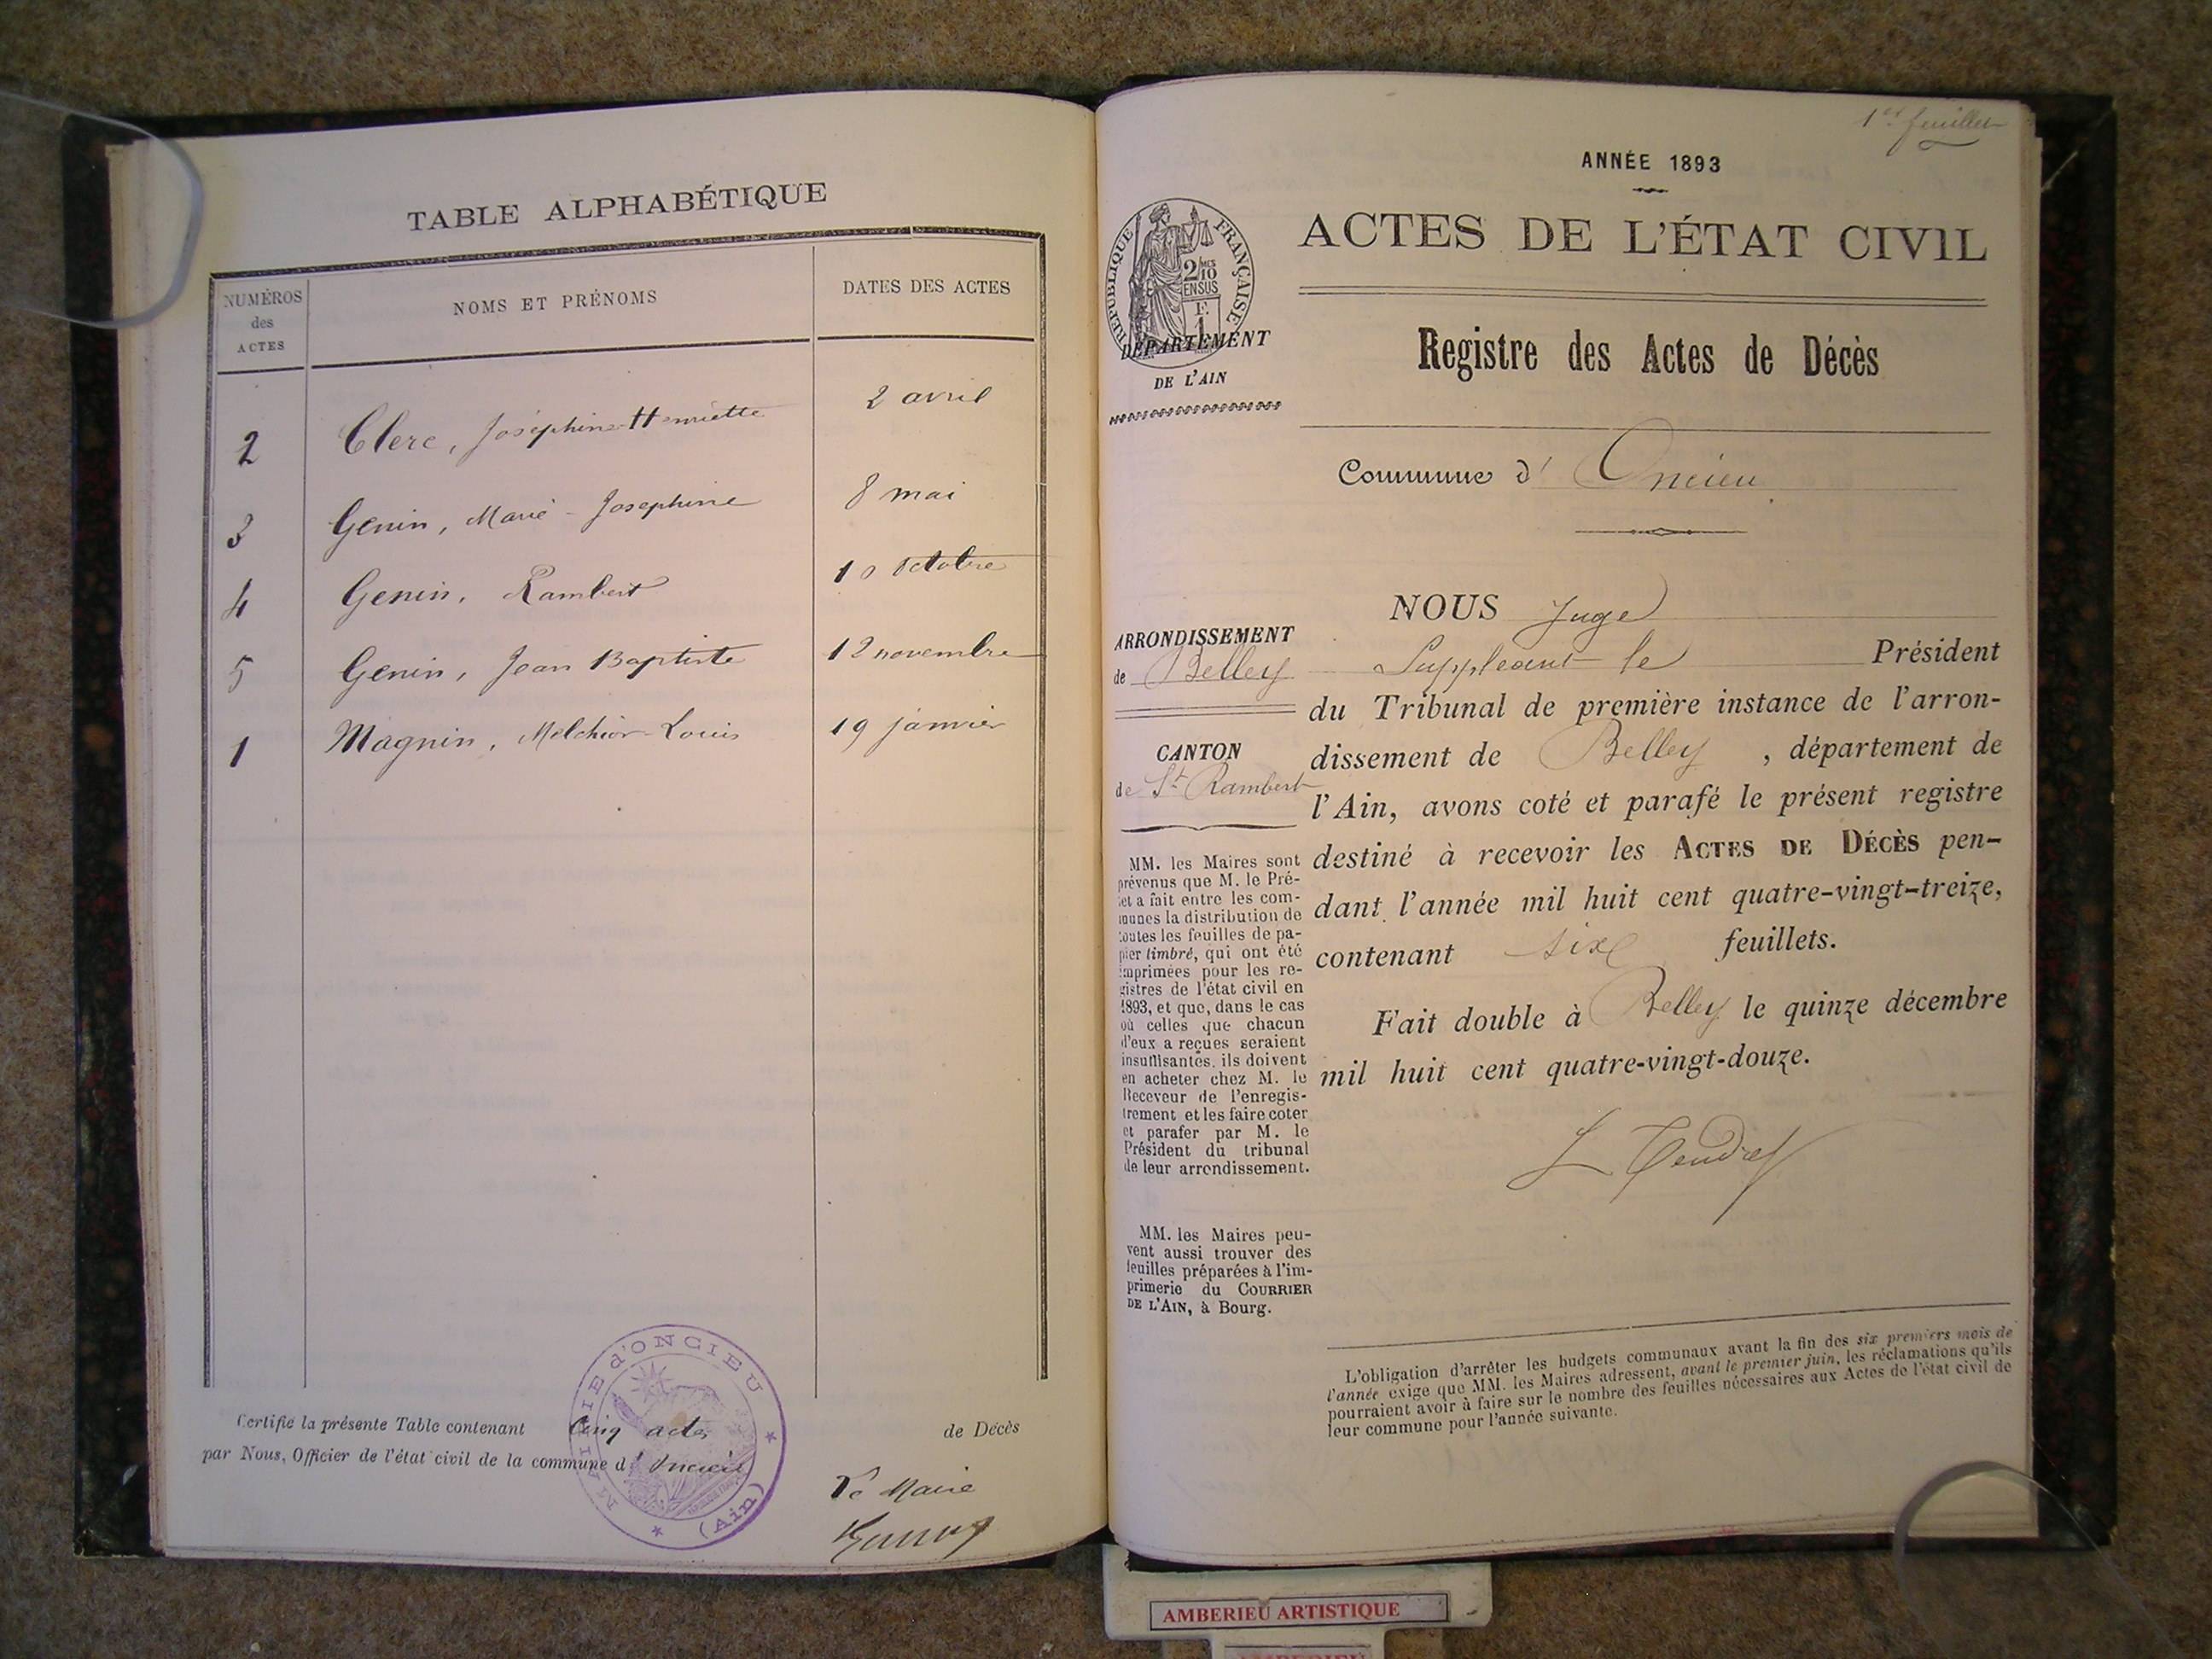 TABLE ALPHABÉTIQUE
NUMÉROS
des
ACTES
NOMS ET PRÉNOMS
DATES DES ACTES
2 Clerc, Joséphine-Henriette 2 avril
3 Genin, Marie-Josephine 8 mai
4 Genin, Rambert 10 octobre
5 Genin, Jean Baptiste 12 novembre
1 Magnin, Melchior-Louis 19 janvier
Certifie la présente Table contenant Cinq actes de Décès
par Nous, Officier de l'état civil de la commune d' Oncieu
MAIRIE d'ONCIEU
(Ain)
Le Maire
1er feuillet
ANNÉE 1893
ACTES DE L'ÉTAT CIVIL
RÉPUBLIQUE FRANÇAISE
2/10 MES
EN SUS
F.
1
DÉPARTEMENT
DE L'AIN
Registre des Actes de Décès
Commune d' Oncieu
ARRONDISSEMENT
de Belley
CANTON
de St Rambert
MM. les Maires sont
prévenus que M. le Pré-
fet a fait entre les com-
munes la distribution de
toutes les feuilles de pa-
pier timbré, qui ont été
imprimées pour les re-
gistres de l'état civil en
1893, et que, dans le cas
où celles que chacun
d'eux a reçues seraient
insuffisantes, ils doivent
en acheter chez M. le
Receveur de l'enregis-
trement et les faire coter
et parafer par M. le
Président du tribunal
de leur arrondissement.
MM. les Maires peu-
vent aussi trouver des
feuilles préparées à l'im-
primerie du COURRIER
DE L'AIN, à Bourg.
NOUS Juge
Suppléant le Président
du Tribunal de première instance de l'arron-
dissement de Belley, département de
l'Ain, avons coté et parafé le présent registre
destiné à recevoir les ACTES DE DÉCÈS pen-
dant l'année mil huit cent quatre-vingt-treize,
contenant six feuillets.
Fait double à Belley le quinze décembre
mil huit cent quatre-vingt-douze.
L Tendret
L'obligation d'arrêter les budgets communaux avant la fin des six premiers mois de
l'année exige que MM. les Maires adressent, avant le premier juin, les réclamations qu'ils
pourraient avoir à faire sur le nombre des feuilles nécessaires aux Actes de l'état civil de
leur commune pour l'année suivante.
AMBERIEU ARTISTIQUE
AMBERIEU